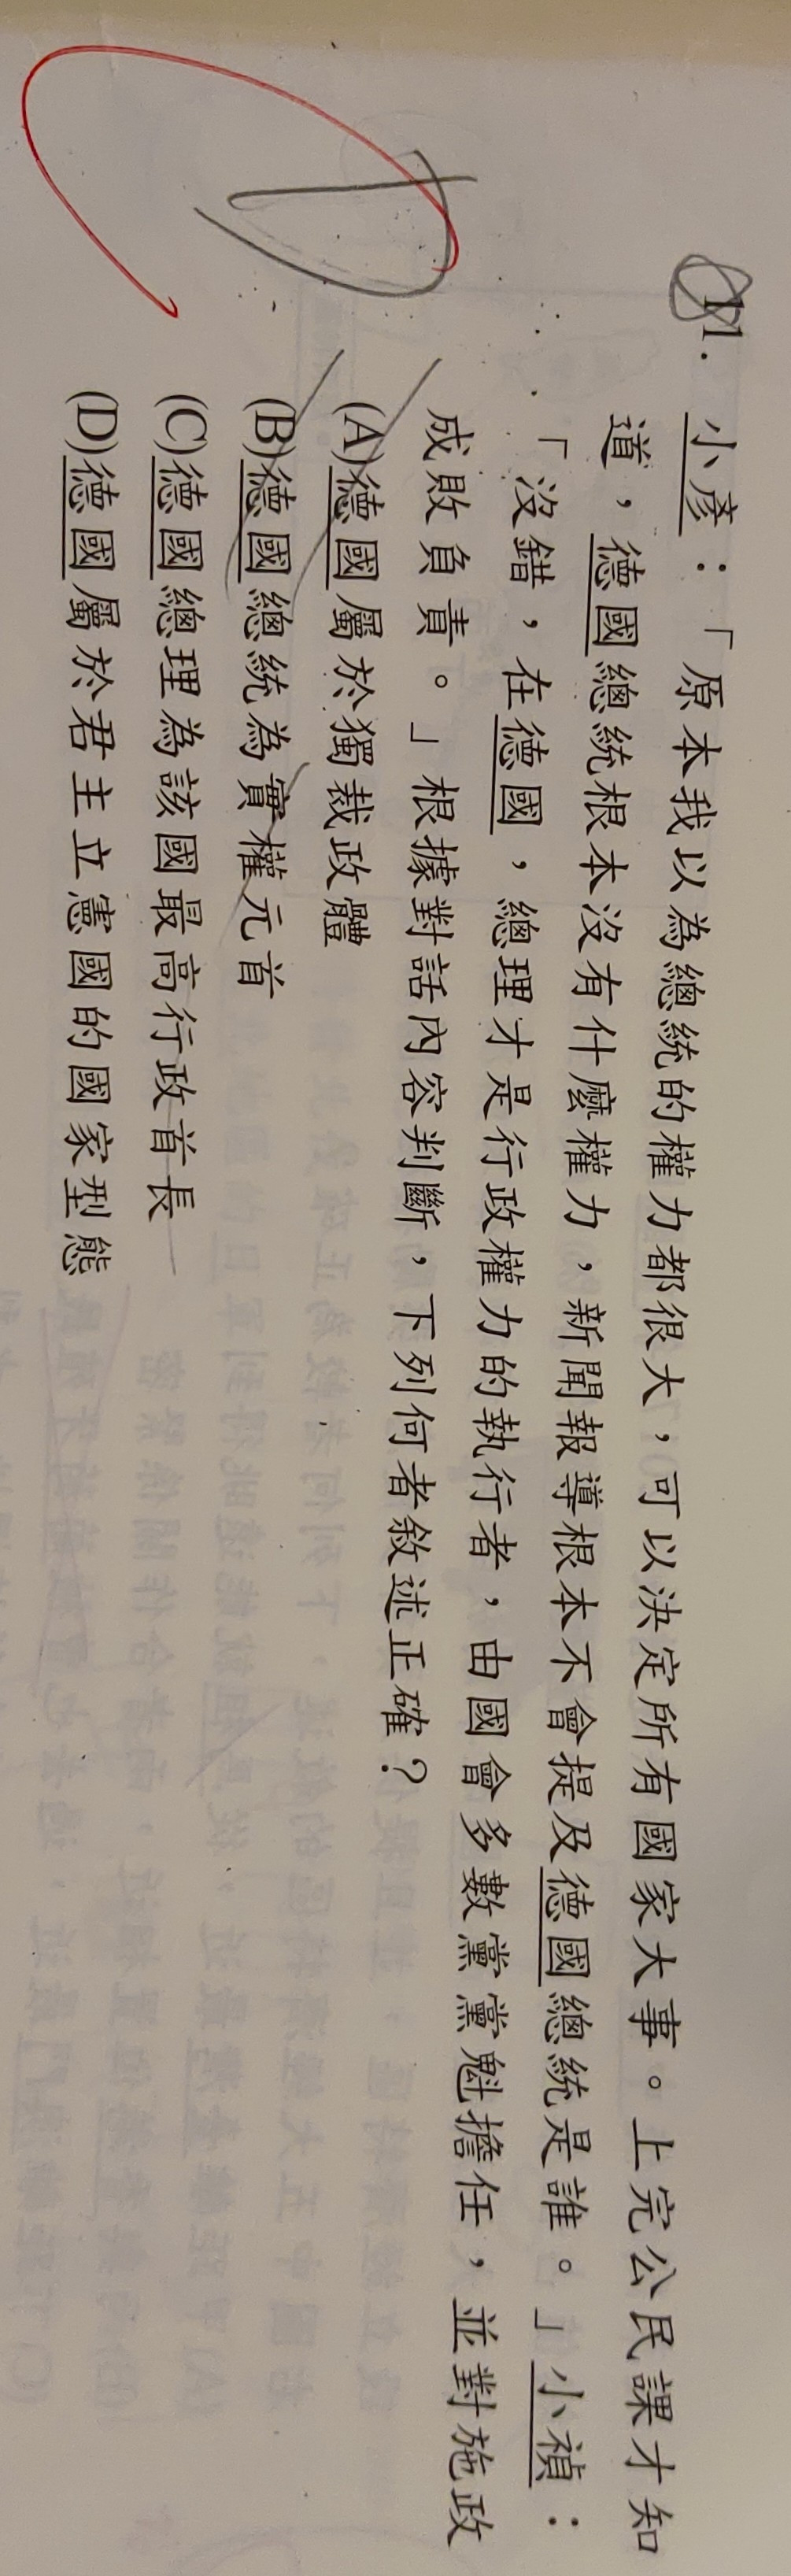 D
11. 小彥：「原本我以為總統的權力都很大，可以決定所有國家大事。上完公民課才知
道，德國總統根本沒有什麼權力，新聞報導根本不會提及德國總統是誰。」小禎：
「沒錯，在德國，總理才是行政權力的執行者，由國會多數黨黨魁擔任，並對施政
成敗負責。」根據對話內容判斷，下列何者敘述正確？
(A)德國屬於獨裁政體
(B)德國總統為實權元首
(C)德國總理為該國最高行政首長
(D)德國屬於君主立憲國的國家型態